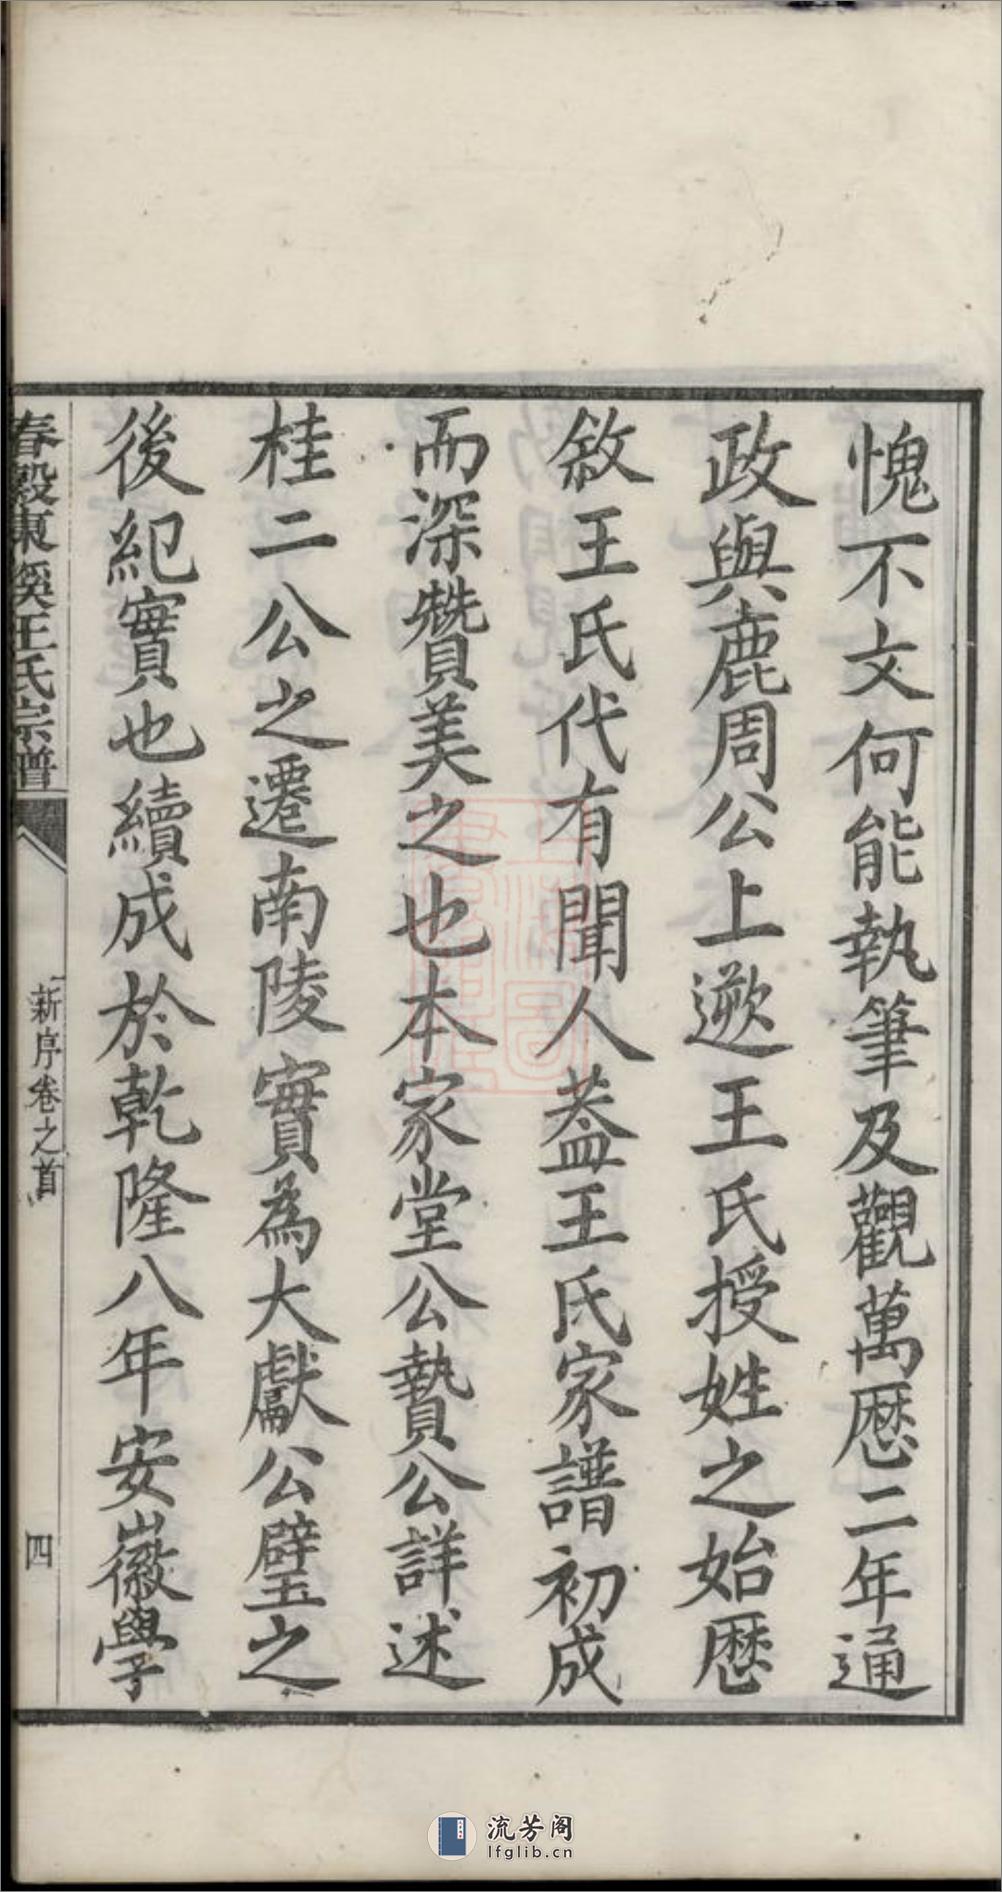 愧不文何能執筆及觀萬厯二年通
政與鹿周公上遡王氏授姓之始厯
敘王氏代有聞人葢王氏家譜初成
而深贊美之也本家堂公贄公詳述
桂二公之遷南陵實為大獻公璧之
後紀實也續成於乾隆八年安徽學
春榖東溪王氏宗譜
新序卷之首
四
流芳阁
lfglib.cn